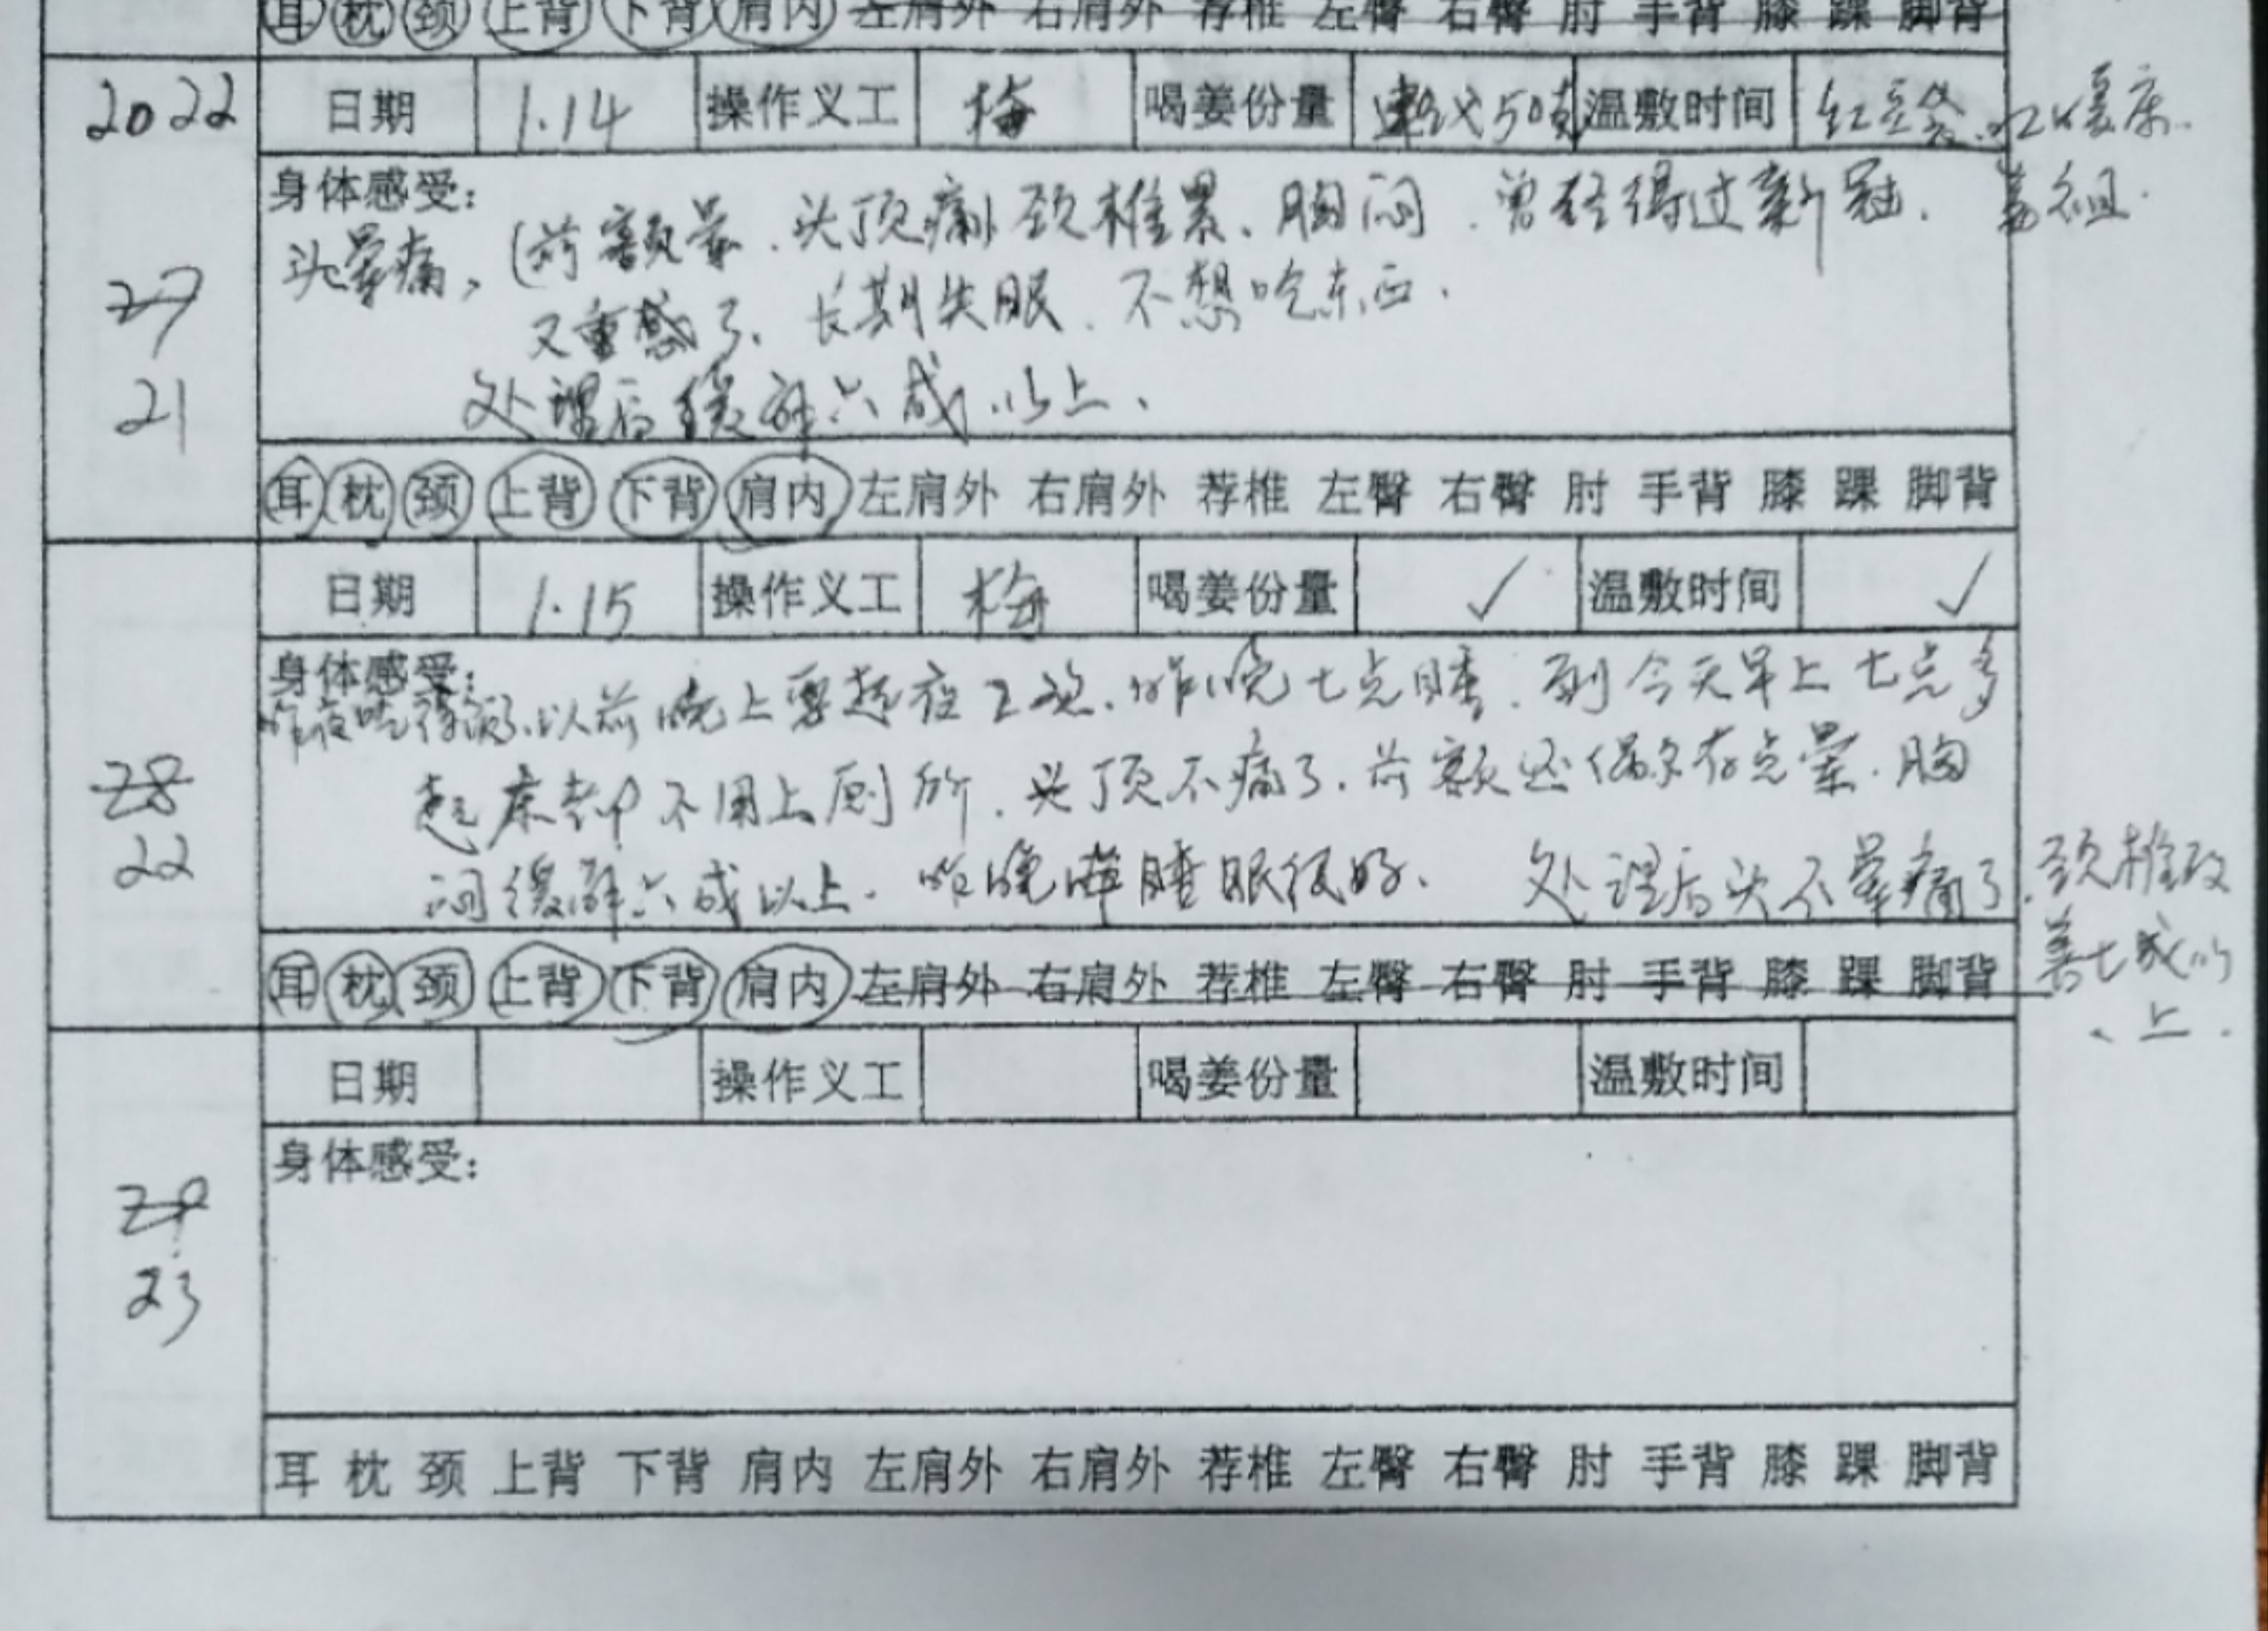 耳 枕 颈 上背 下背 肩内 左肩外 右肩外 荐椎 左臀 右臀 肘 手背 膝 踝 脚背
2022 日期 1.14 操作义工 梅 喝姜份量 50克 温敷时间 红豆袋.
姜.
身体感受:
头晕痛, (前额晕.头顶痛 颈椎累、胸闷.曾经得过新冠.
又重感了.长期失眠.不想吃东西.
处理后缓解六成以上.
27
21
耳 枕 颈 上背 下背 肩内 左肩外 右肩外 荐椎 左臀 右臀 肘 手背 膝 踝 脚背
日期 1.15 操作义工 梅 喝姜份量 ✓ 温敷时间 ✓
身体感受:
昨夜吃得饭了.以前晚上要起夜2次.昨晚七点睡.到今天早上七点多
起床都不用上厕所.头顶不痛了.前额还偶尔有点晕.胸
闷缓解六成以上.昨晚睡眠很好. 处理后头不晕痛了.颈椎改
善七成以
上.
28
22
耳 枕 颈 上背 下背 肩内 左肩外 右肩外 荐椎 左臀 右臀 肘 手背 膝 踝 脚背
日期 操作义工 喝姜份量 温敷时间
身体感受:
29
23
耳 枕 颈 上背 下背 肩内 左肩外 右肩外 荐椎 左臀 右臀 肘 手背 膝 踝 脚背